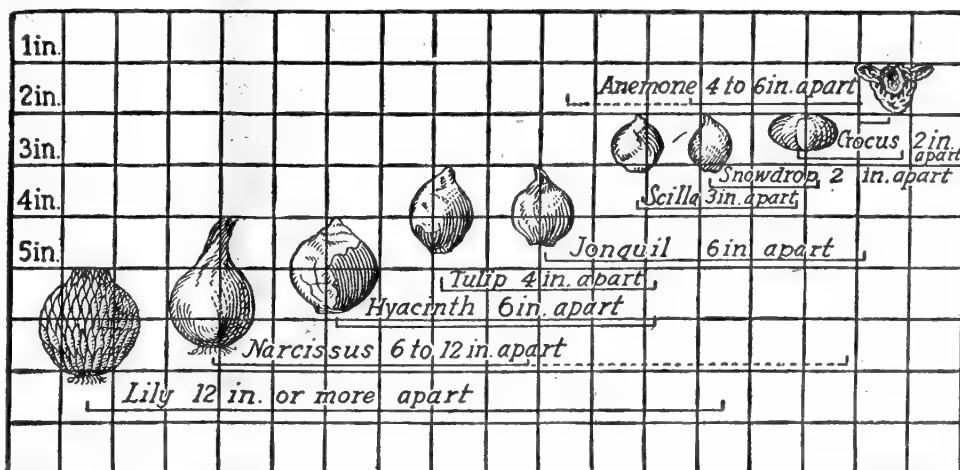 1in.
Anemone 4 to 6in. apart
2in.
Crocus 2in.
apart
3in.
Snowdrop 2 in. apart
Scilla 3in. apart
4in.
Jonquil 6in apart
5in.
Tulip 4 in. apart
Hyacinth 6in. apart
Narcissus 6 to 12 in. apart
Lily 12 in. or more apart